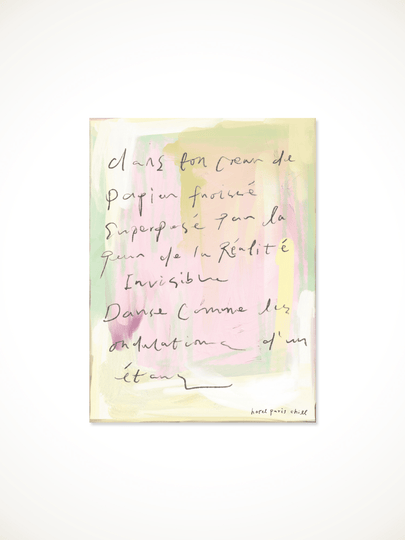 dans ton cœur de
papier froissé
Superposé par la
peur de la Réalité
Invisible
Danse Comme les
ondulations d'un
étang
hotel paris chill